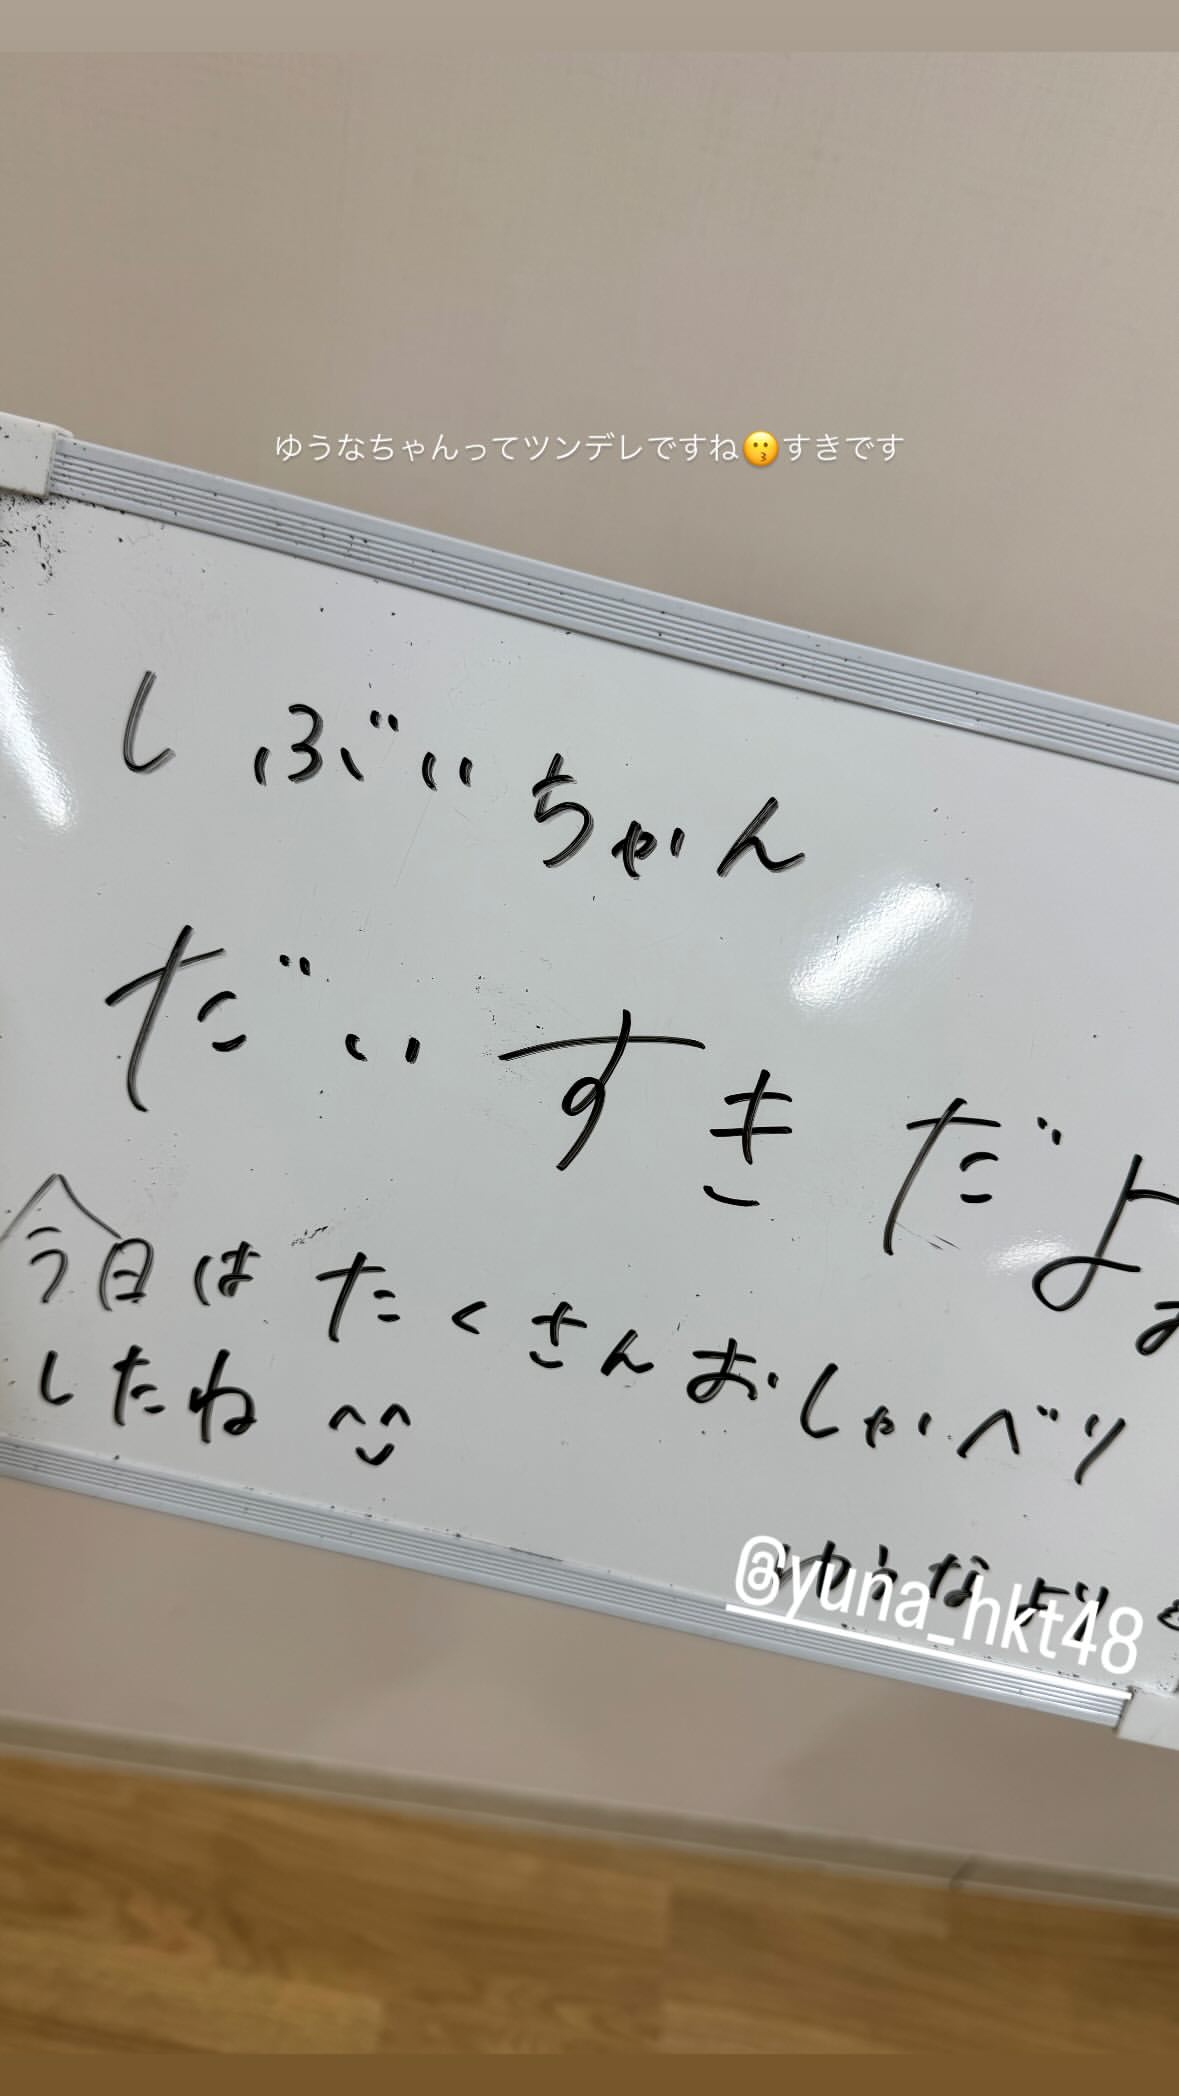 ゆうなちゃんってツンデレですね😗すきです
しぶいちゃん
だいすきだよ
今日はたくさんおしゃべり
したね ^^
ゆうなより
@yuna_hkt48